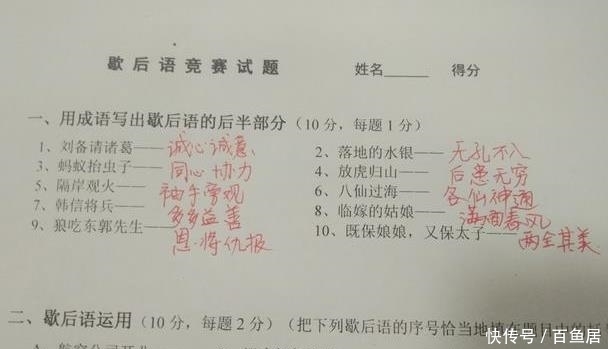 歇后语竞赛试题 姓名______ 得分
一、用成语写出歇后语的后半部分（10分，每题1分）
1、刘备请诸葛——诚心诚意 2、落地的水银——无孔不入
3、蚂蚁抬虫子——同心协力 4、放虎归山——后患无穷
5、隔岸观火——袖手旁观 6、八仙过海——各仙神通
7、韩信将兵——多多益善 8、临嫁的姑娘——满面春风
9、狼吃东郭先生——恩将仇报 10、既保娘娘，又保太子——两全其美
二、歇后语运用（10分，每题2分）（把下列歇后语的序号恰当地填在题目中的
快传号/百鱼居